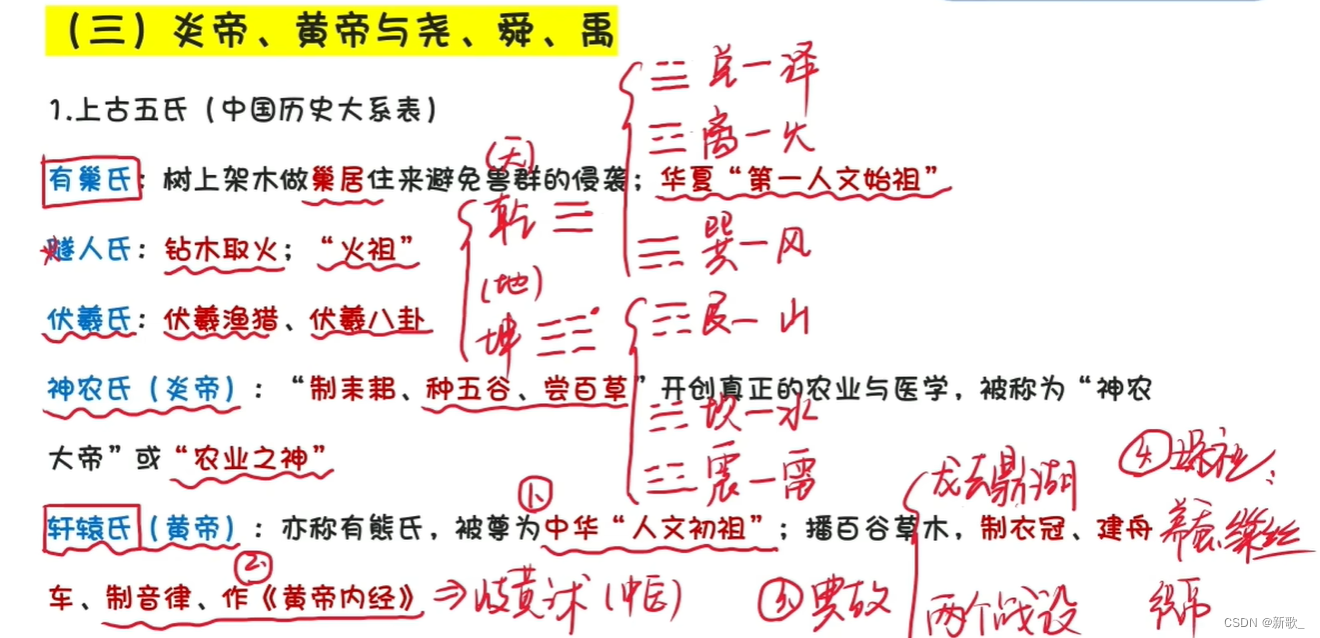 （三）炎帝、黄帝与尧、舜、禹
1.上古五氏（中国历史大系表）
兑一泽
离一火
(天)
有巢氏：树上架木做巢居住来避免兽群的侵袭；华夏“第一人文始祖”
乾 ☰
巽一风
燧人氏：钻木取火；“火祖”
(地)
伏羲氏：伏羲渔猎、伏羲八卦
坤 ☷
艮一山
神农氏（炎帝）：“制耒耜、种五谷、尝百草”开创真正的农业与医学，被称为“神农
坎一水
大帝”或“农业之神”
震一雷
龙去鼎湖
④嫘祖：
①
轩辕氏（黄帝）：亦称有熊氏，被尊为中华“人文初祖”；播百谷草木，制衣冠、建舟
养蚕缫丝
②
车、制音律、作《黄帝内经》⇒岐黄术(中医)
③典故
两个战设
CSDN @新歌_